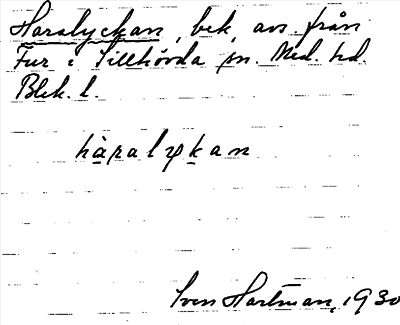 Haralyckan, bek. av. från
Fur i Tillhövda sn. Med. hd.
Blek. l.
hàralykan
Sven Hartman, 1930